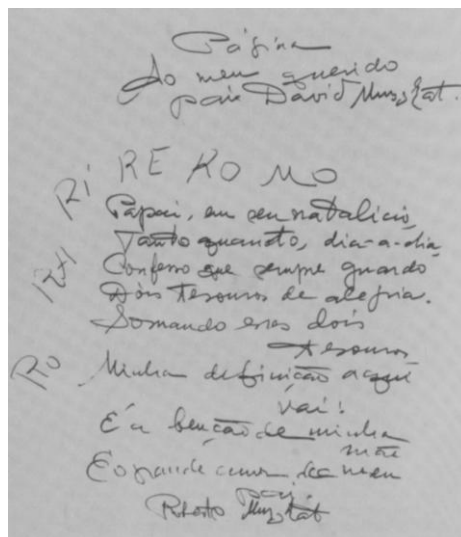 Página
Ao meu querido
pai David Muszkat.
RI RE KO MO
Papai, em seu natalício,
Tanto quanto, dia-a-dia,
Confesso que sempre guardo
Dois tesouros de alegria.
Somando esses dois
tesouros
RO Minha definição aqui
vai:
É a benção de minha
mãe
E o grande amor de meu
pai.
Roberto Muszkat